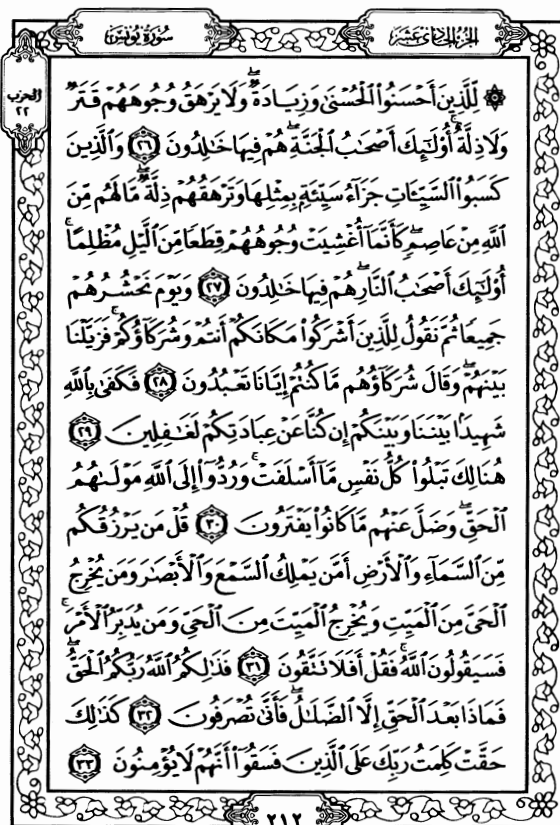 الجزء الحادي عشر
سورة يونس
الحزب
٢٢
۞ لِّلَّذِينَ أَحْسَنُوا۟ ٱلْحُسْنَىٰ وَزِيَادَةٌ ۖ وَلَا يَرْهَقُ وُجُوهَهُمْ قَتَرٌ
وَلَا ذِلَّةٌ ۚ أُو۟لَـٰٓئِكَ أَصْحَـٰبُ ٱلْجَنَّةِ ۖ هُمْ فِيهَا خَـٰلِدُونَ ٢٦ وَٱلَّذِينَ
كَسَبُوا۟ ٱلسَّيِّـَٔاتِ جَزَآءُ سَيِّئَةٍۭ بِمِثْلِهَا وَتَرْهَقُهُمْ ذِلَّةٌ ۖ مَّا لَهُم مِّنَ
ٱللَّهِ مِنْ عَاصِمٍ ۖ كَأَنَّمَآ أُغْشِيَتْ وُجُوهُهُمْ قِطَعًا مِّنَ ٱلَّيْلِ مُظْلِمًا ۚ
أُو۟لَـٰٓئِكَ أَصْحَـٰبُ ٱلنَّارِ ۖ هُمْ فِيهَا خَـٰلِدُونَ ٢٧ وَيَوْمَ نَحْشُرُهُمْ
جَمِيعًا ثُمَّ نَقُولُ لِلَّذِينَ أَشْرَكُوا۟ مَكَانَكُمْ أَنتُمْ وَشُرَكَآؤُكُمْ ۚ فَزَيَّلْنَا
بَيْنَهُمْ ۖ وَقَالَ شُرَكَآؤُهُم مَّا كُنتُمْ إِيَّانَا تَعْبُدُونَ ٢٨ فَكَفَىٰ بِٱللَّهِ
شَهِيدًۢا بَيْنَنَا وَبَيْنَكُمْ إِن كُنَّا عَنْ عِبَادَتِكُمْ لَغَـٰفِلِينَ ٢٩
هُنَالِكَ تَبْلُوا۟ كُلُّ نَفْسٍ مَّآ أَسْلَفَتْ ۚ وَرُدُّوٓا۟ إِلَى ٱللَّهِ مَوْلَىٰهُمُ
ٱلْحَقِّ ۖ وَضَلَّ عَنْهُم مَّا كَانُوا۟ يَفْتَرُونَ ٣٠ قُلْ مَن يَرْزُقُكُم
مِّنَ ٱلسَّمَآءِ وَٱلْأَرْضِ أَمَّن يَمْلِكُ ٱلسَّمْعَ وَٱلْأَبْصَـٰرَ وَمَن يُخْرِجُ
ٱلْحَىَّ مِنَ ٱلْمَيِّتِ وَيُخْرِجُ ٱلْمَيِّتَ مِنَ ٱلْحَىِّ وَمَن يُدَبِّرُ ٱلْأَمْرَ ۚ
فَسَيَقُولُونَ ٱللَّهُ ۚ فَقُلْ أَفَلَا تَتَّقُونَ ٣١ فَذَٰلِكُمُ ٱللَّهُ رَبُّكُمُ ٱلْحَقُّ ۖ
فَمَاذَا بَعْدَ ٱلْحَقِّ إِلَّا ٱلضَّلَـٰلُ ۖ فَأَنَّىٰ تُصْرَفُونَ ٣٢ كَذَٰلِكَ
حَقَّتْ كَلِمَتُ رَبِّكَ عَلَى ٱلَّذِينَ فَسَقُوٓا۟ أَنَّهُمْ لَا يُؤْمِنُونَ ٣٣
٢١٢